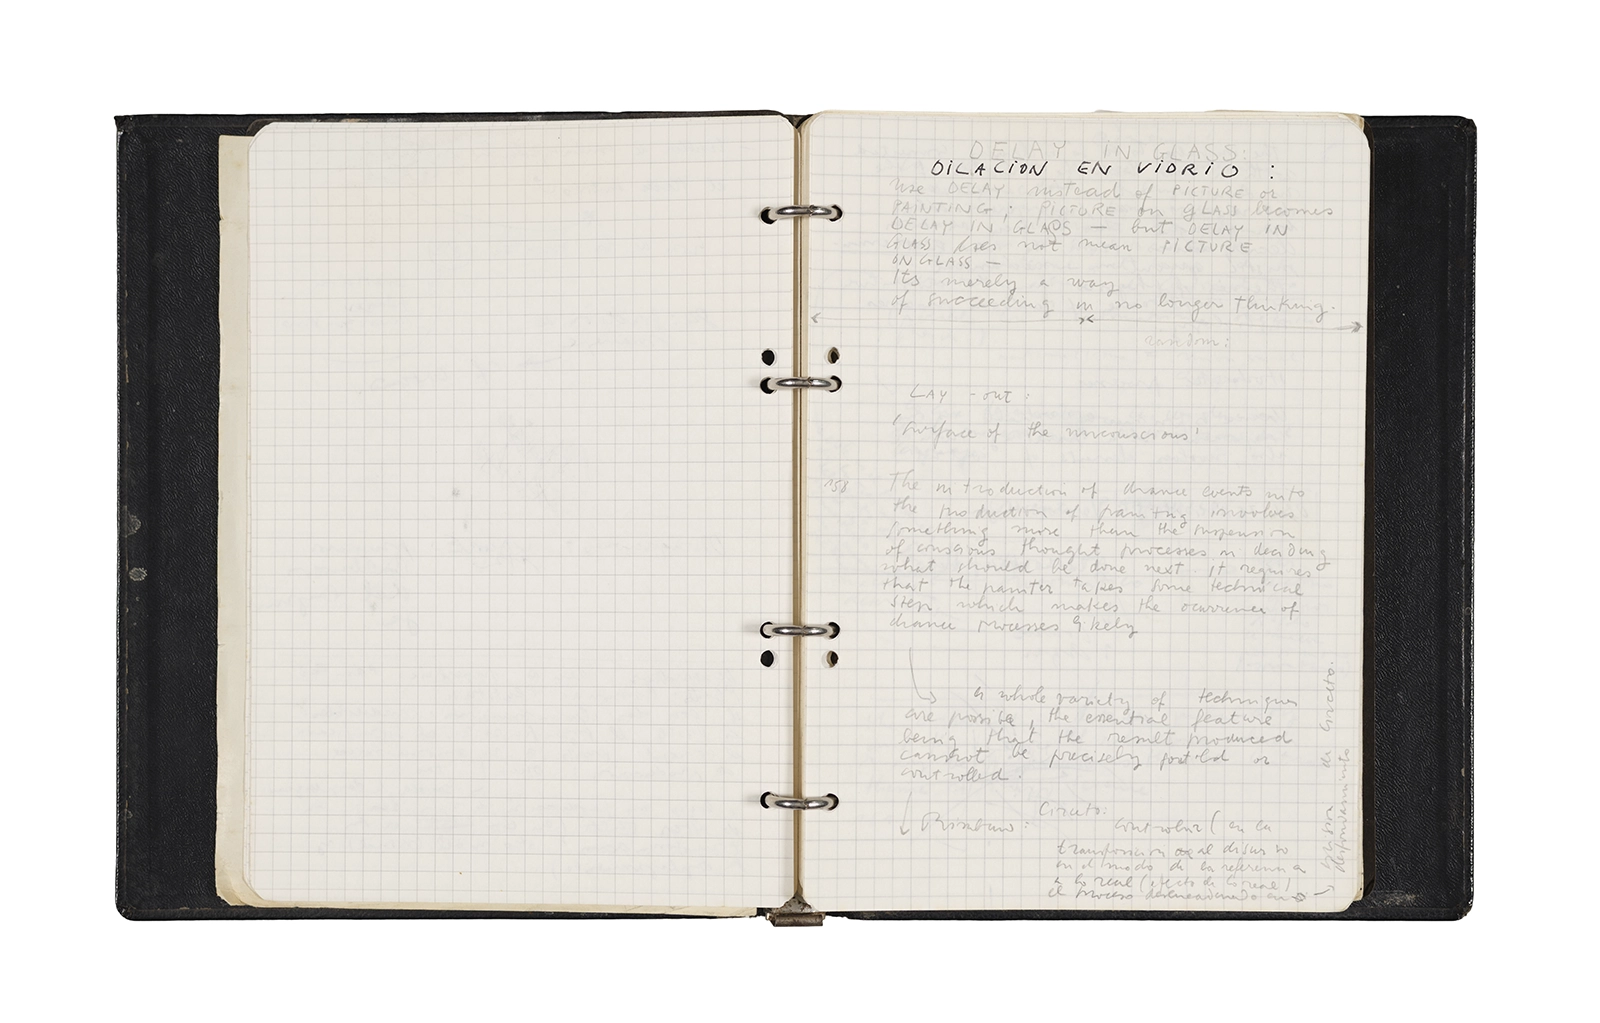 DELAY IN GLASS:
DILACION EN VIDRIO :
Use DELAY instead of PICTURE or
PAINTING; PICTURE on GLASS becomes
DELAY IN GLASS — but DELAY IN
GLASS does not mean PICTURE
ON GLASS —
Its merely a way
of succeeding in no longer thinking.
random:
LAY - out :
'Surface of the unconscious'
158
The introduction of chance events into
the production of painting involves
something more than the suspension
of conscious thought processes in deciding
what should be done next. It requires
that the painter takes some technical
step which makes the ocurrence of
chance processes likely
a whole variety of techniques
are possible, the essential feature
being that the result produced
cannot be precisely or
controlled.
Circuito:
controlar (en la
al discurso
en el modo de la referencia
a lo real (efecto de lo real)
el proceso
de Circuito.